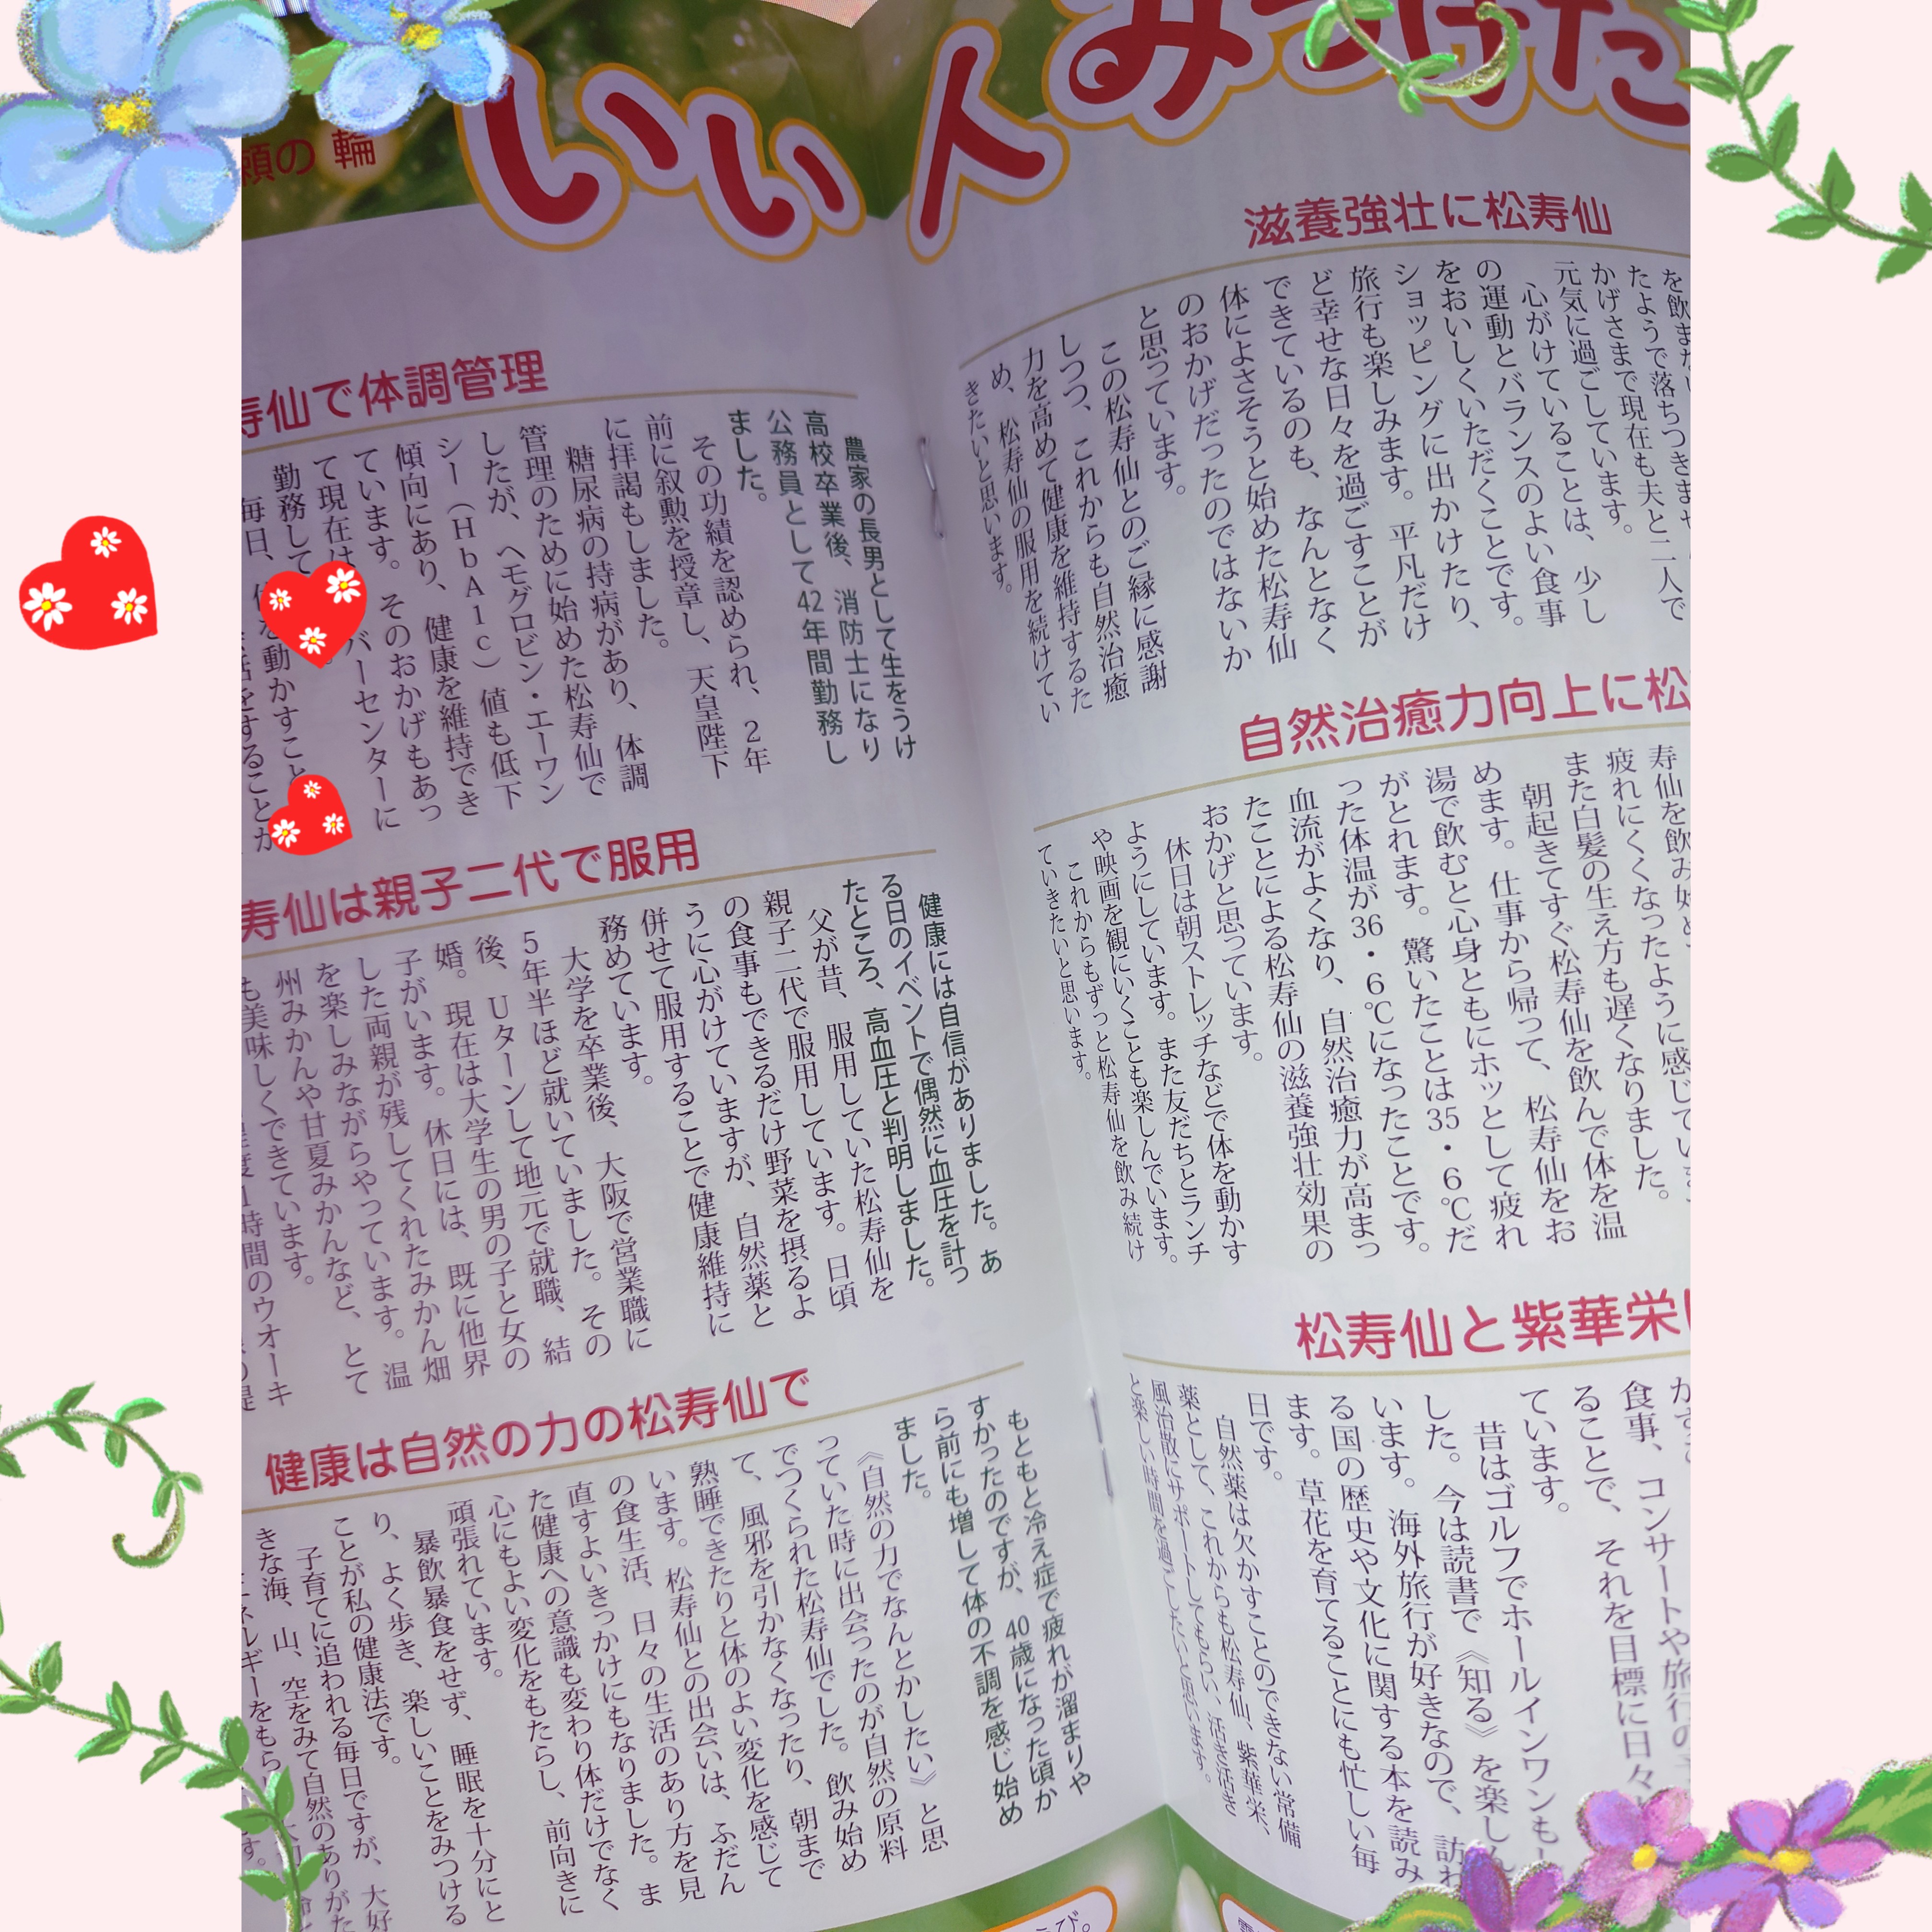 いい人みつけた
頼の輪
滋養強壮に松寿仙
たようで落ちつきま
かげさまで現在も夫と二人で
元気に過ごしています。
心がけていることは、少し
の運動とバランスのよい食事
をおいしくいただくことです。
ショッピングに出かけたり、
旅行も楽しみます。平凡だけ
ど幸せな日々を過ごすことが
できているのも、なんとなく
体によさそうと始めた松寿仙
のおかげだったのではないか
と思っています。
この松寿仙とのご縁に感謝
しつつ、これからも自然治癒
力を高めて健康を維持するた
め、松寿仙の服用を続けてい
きたいと思います。
自然治癒力向上に松
寿仙を飲み始め
疲れにくくなったように感じてい
また白髪の生え方も遅くなりました。
朝起きてすぐ松寿仙を飲んで体を温
めます。仕事から帰って、松寿仙をお
湯で飲むと心身ともにホッとして疲れ
がとれます。驚いたことは35・6℃だ
った体温が36・6℃になったことです。
血流がよくなり、自然治癒力が高まっ
たことによる松寿仙の滋養強壮効果の
おかげと思っています。
休日は朝ストレッチなどで体を動かす
ようにしています。また友だちとランチ
や映画を観にいくことも楽しんでいます。
これからもずっと松寿仙を飲み続け
ていきたいと思います。
松寿仙と紫華栄
食事、コンサートや旅行の
ることで、それを目標に日々
ています。
昔はゴルフでホールインワンも
した。今は読書で《知る》を楽しん
います。海外旅行が好きなので、訪れ
る国の歴史や文化に関する本を読み
ます。草花を育てることにも忙しい毎
日です。
自然薬は欠かすことのできない常備
薬として、これからも松寿仙、紫華栄、
風治散にサポートしてもらい、活き活き
と楽しい時間を過ごしたいと思います。
寿仙で体調管理
農家の長男として生をうけ
高校卒業後、消防士になり
公務員として42年間勤務し
ました。
その功績を認められ、2年
前に叙勲を授章し、天皇陛下
に拝謁もしました。
糖尿病の持病があり、体調
管理のために始めた松寿仙で
したが、ヘモグロビン・エーワン
シー（HbA1c）値も低下
傾向にあり、健康を維持でき
ています。そのおかげもあっ
て現在は
バーセンターに
勤務して
毎日、体を動かすこと
寿仙は親子二代で服用
健康には自信がありました。あ
る日のイベントで偶然に血圧を計っ
たところ、高血圧と判明しました。
父が昔、服用していた松寿仙を
親子二代で服用しています。日頃
の食事もできるだけ野菜を摂るよ
うに心がけていますが、自然薬と
併せて服用することで健康維持に
務めています。
大学を卒業後、大阪で営業職に
5年半ほど就いていました。その
後、Uターンして地元で就職、結
婚。現在は大学生の男の子と女の
子がいます。休日には、既に他界
した両親が残してくれたみかん畑
を楽しみながらやっています。温
州みかんや甘夏みかんなど、とて
も美味しくできています。
1時間のウオーキ
健康は自然の力の松寿仙で
もともと冷え症で疲れが溜まりや
すかったのですが、40歳になった頃か
ら前にも増して体の不調を感じ始め
ました。
《自然の力でなんとかしたい》と思
っていた時に出会ったのが自然の原料
でつくられた松寿仙でした。飲み始め
て、風邪を引かなくなったり、朝まで
熟睡できたりと体のよい変化を感じて
います。松寿仙との出会いは、ふだん
の食生活、日々の生活のあり方を見
直すよいきっかけにもなりました。ま
た健康への意識も変わり体だけでなく
心にもよい変化をもたらし、前向きに
頑張れています。
暴飲暴食をせず、睡眠を十分にと
り、よく歩き、楽しいことをみつける
ことが私の健康法です。
子育てに追われる毎日ですが、大好
きな海、山、空をみて自然のありがた